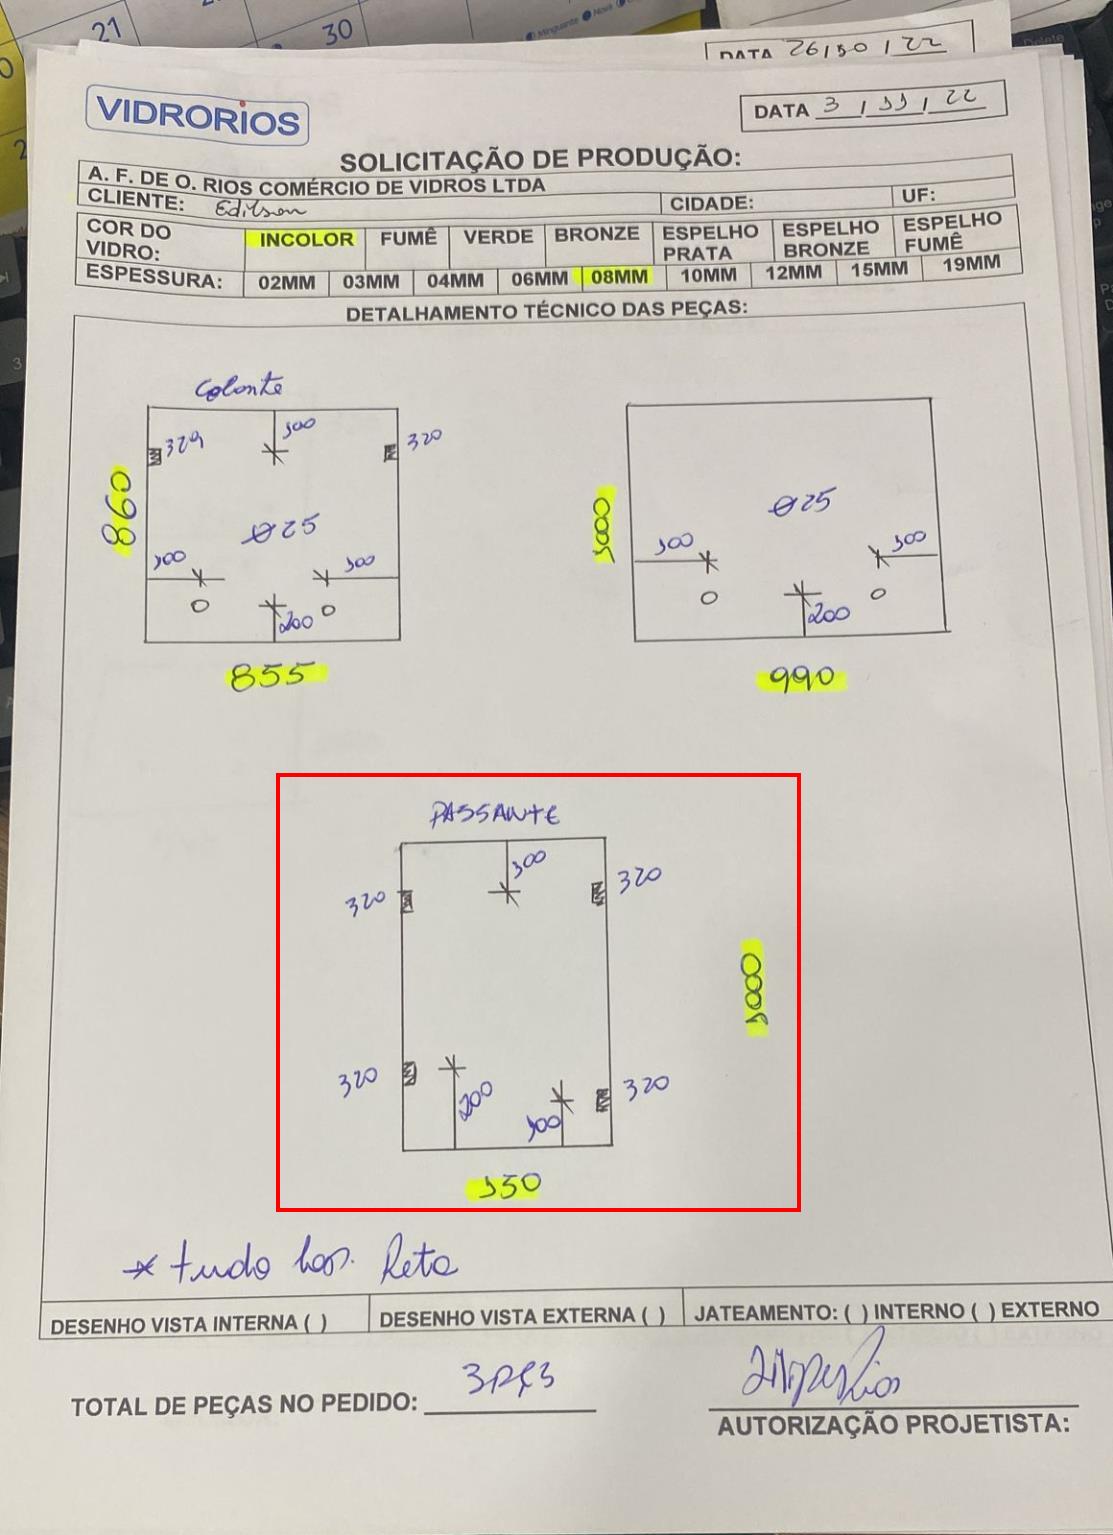 21
30
Minguante
Nova
DATA 26/10/22
VIDRORIOS
DATA 3/11/22
SOLICITAÇÃO DE PRODUÇÃO:
A. F. DE O. RIOS COMÉRCIO DE VIDROS LTDA
CLIENTE: Edilson CIDADE: UF:
COR DO VIDRO: INCOLOR FUMÊ VERDE BRONZE ESPELHO PRATA ESPELHO BRONZE ESPELHO FUMÊ
ESPESSURA: 02MM 03MM 04MM 06MM 08MM 10MM 12MM 15MM 19MM
DETALHAMENTO TÉCNICO DAS PEÇAS:
Colante
320 100 320
860
Ø25
100 100
200
855
1000
Ø25
100 100
200
990
PASSANTE
100
320 320
1000
320 200 100 320
150
* tudo lap. Reto
DESENHO VISTA INTERNA ( ) DESENHO VISTA EXTERNA ( ) JATEAMENTO: ( ) INTERNO ( ) EXTERNO
TOTAL DE PEÇAS NO PEDIDO: 3PÇS
AUTORIZAÇÃO PROJETISTA: